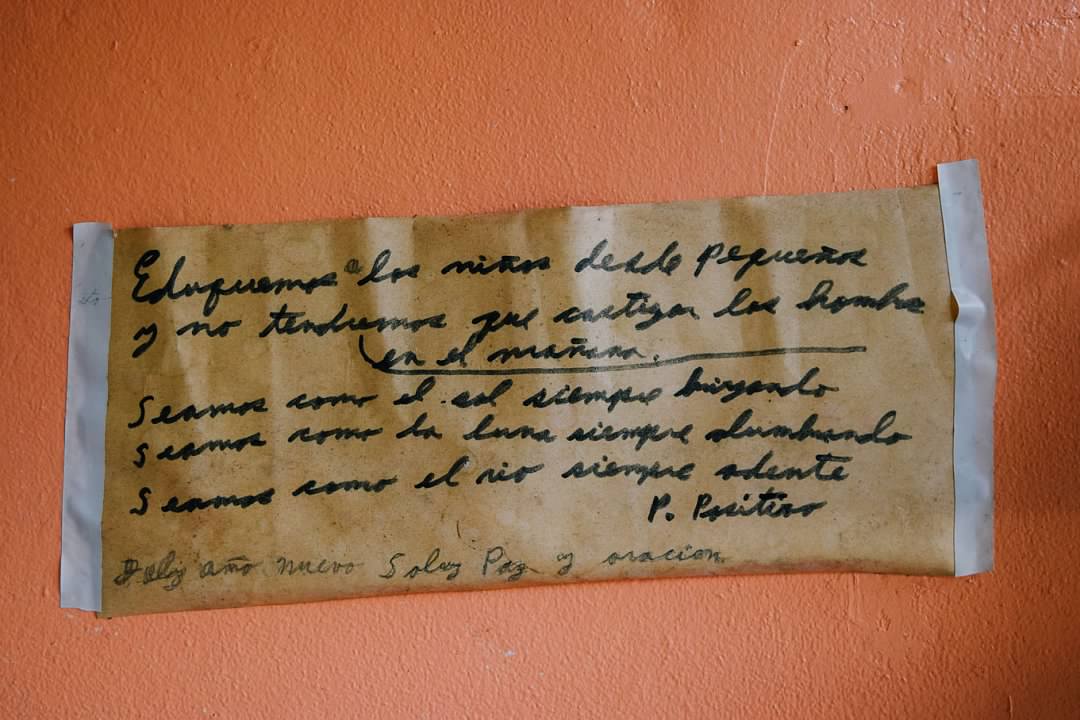 Eduquemos a los niños desde pequeños
y no tendremos que castigar los hombre
en el mañana.
Seamos como el sol siempre
Seamos como la luna siempre alumbrando
Seamos como el rio siempre adente
P. Positivo
Feliz año nuevo Paz y oracion